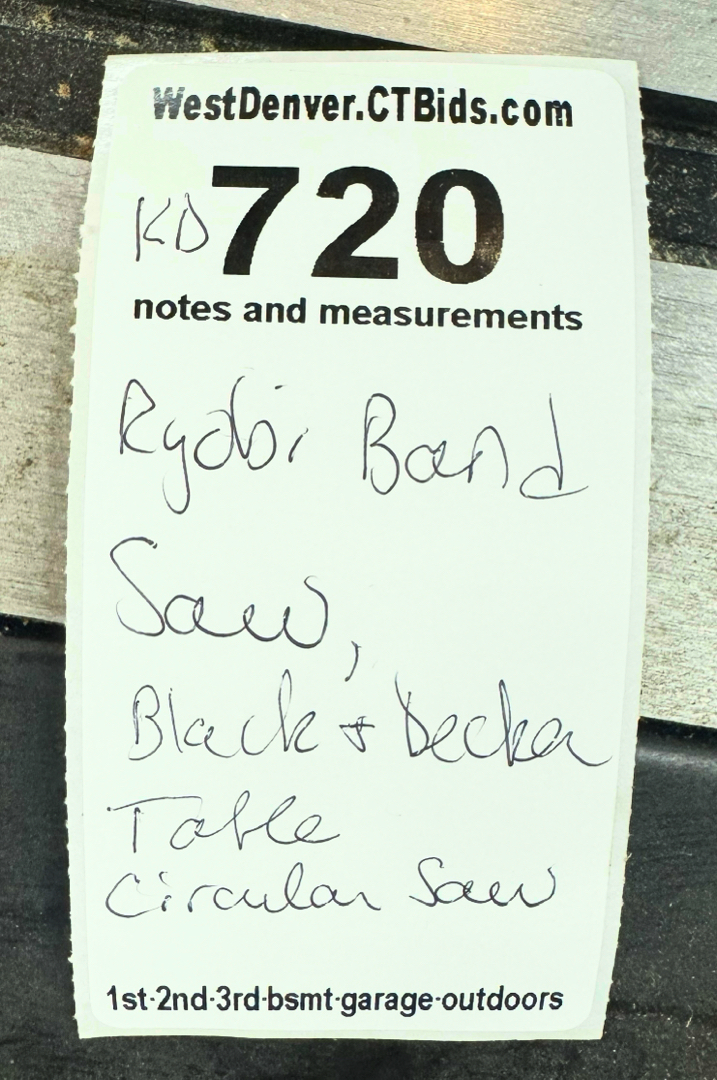 WestDenver.CTBids.com
KD 720
notes and measurements
Ryobi Band
Saw,
Black + Decker
Table
Circular Saw
1st-2nd-3rd-bsmt-garage-outdoors